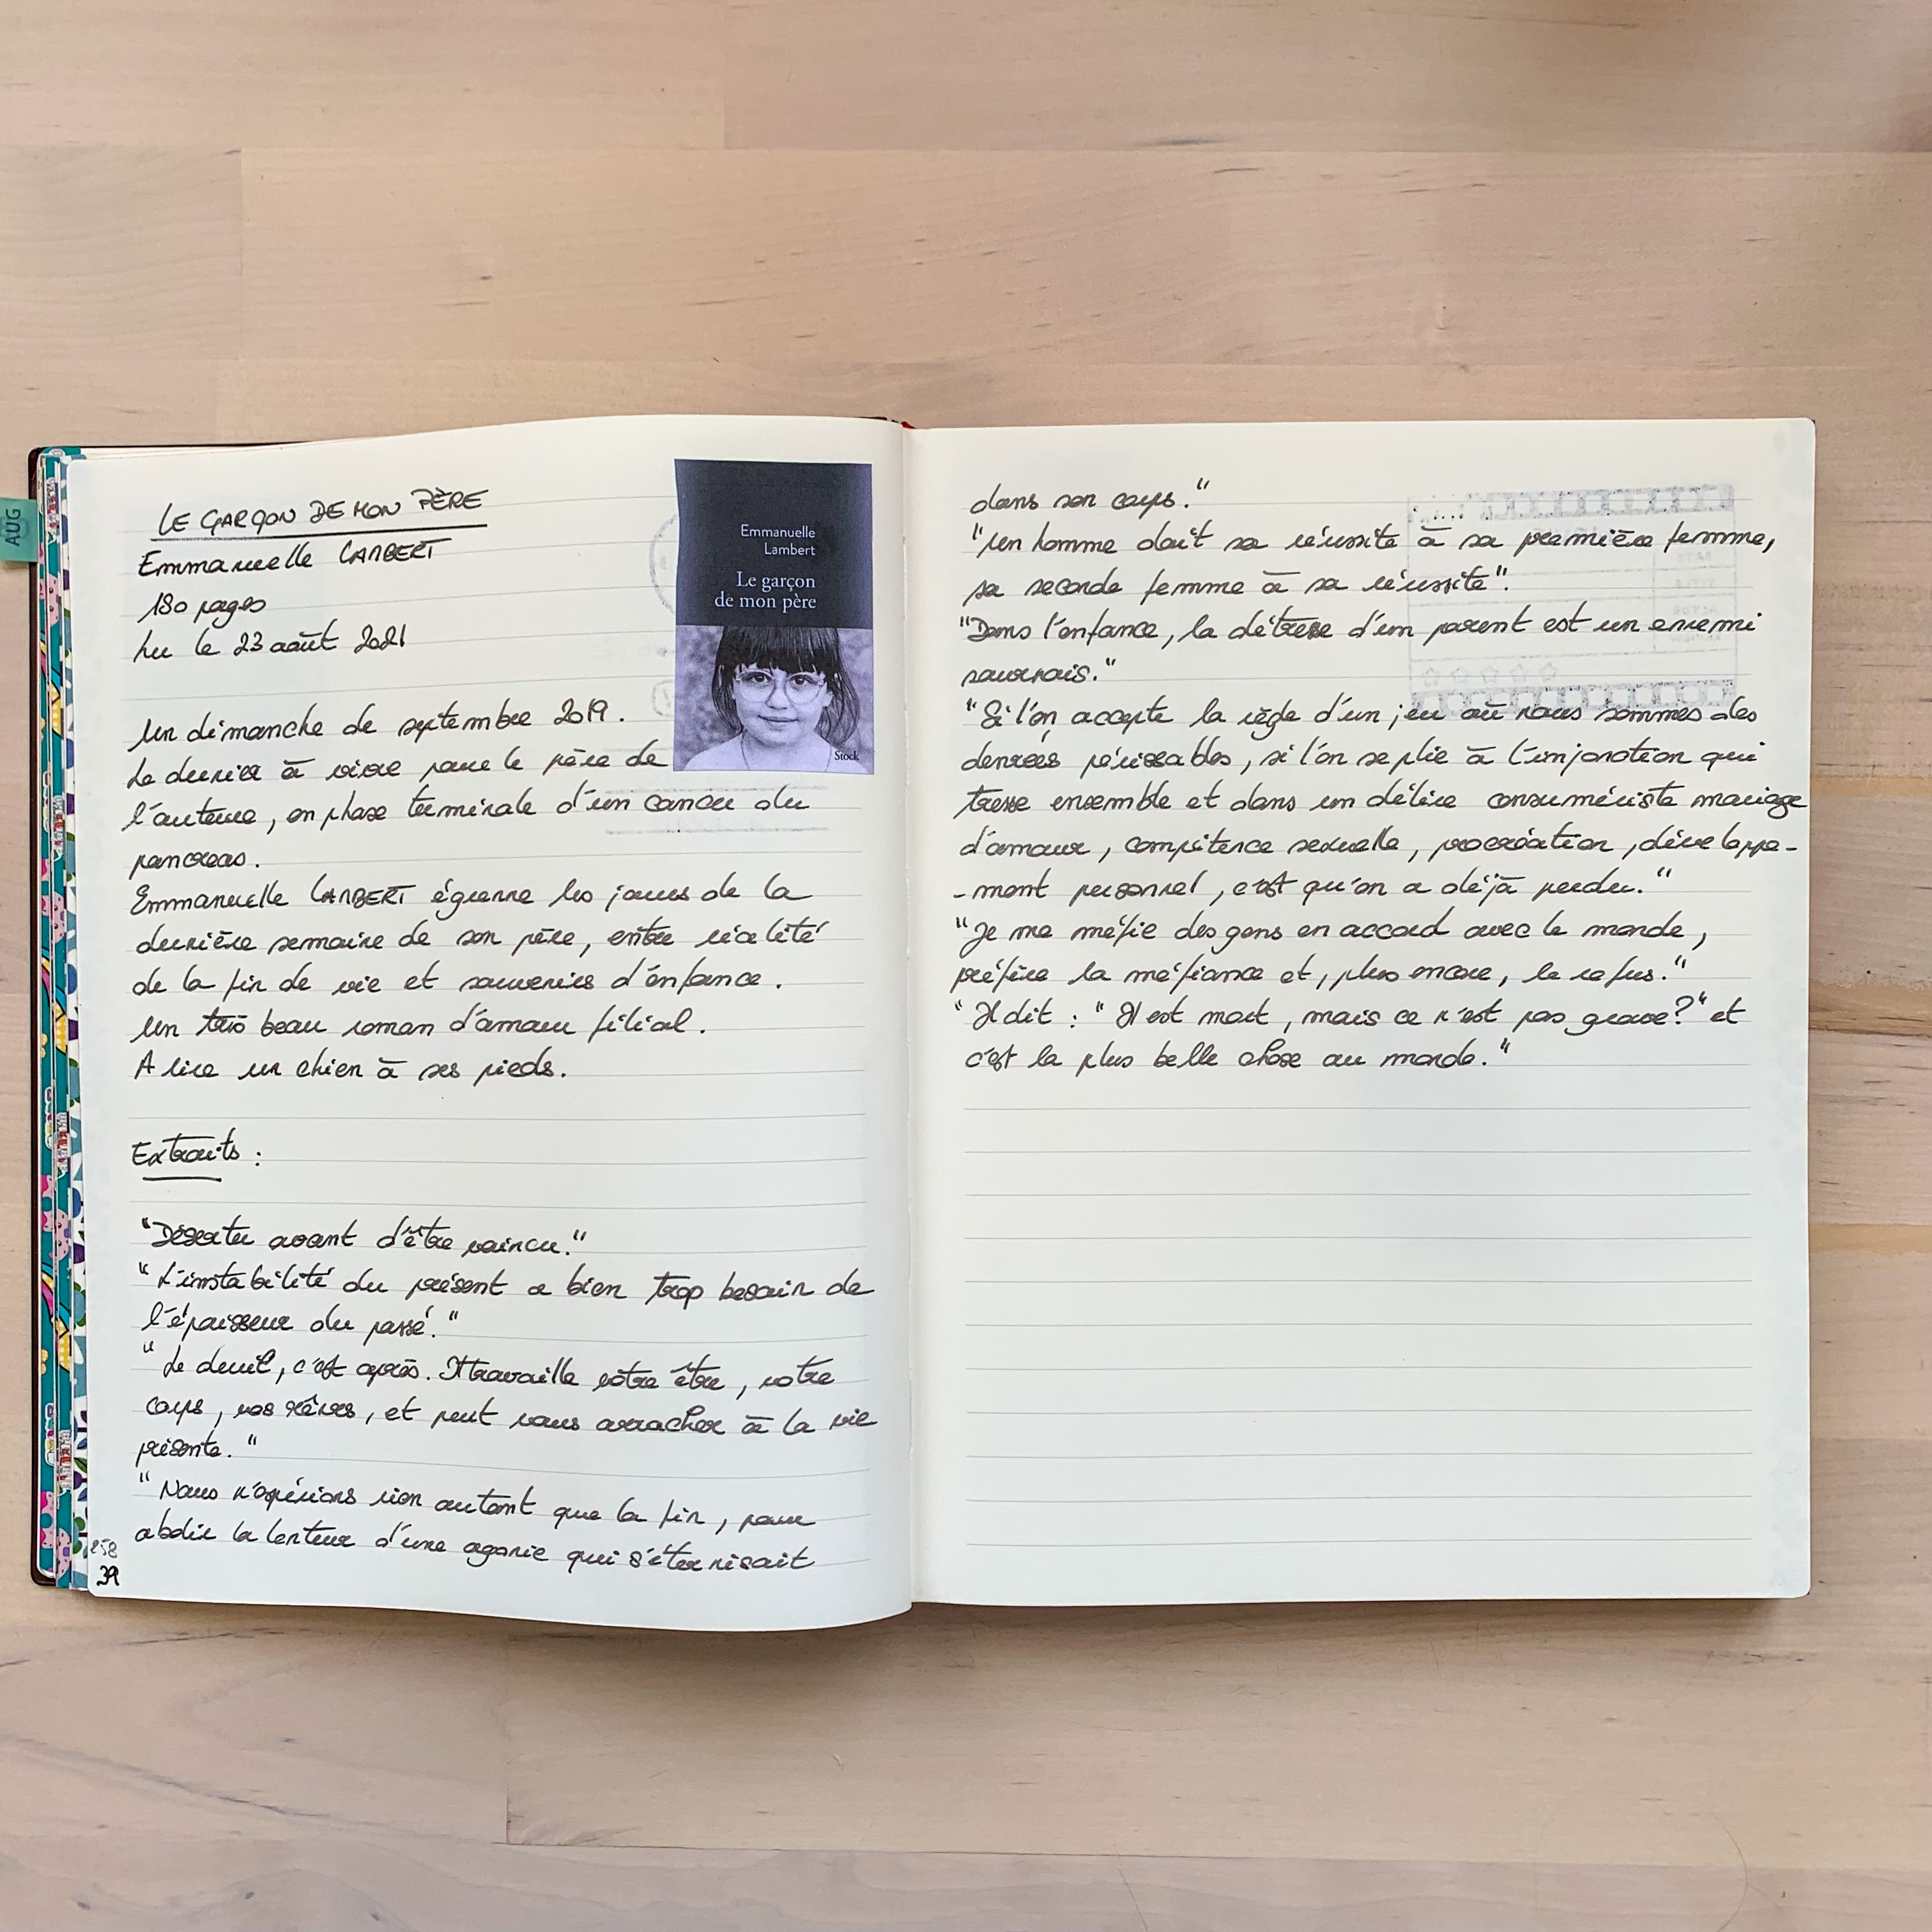 AUG
LE GARÇON DE MON PÈRE
Emmanuelle LAMBERT
180 pages
Lu le 23 août 2021
Emmanuelle
Lambert
Le garçon
de mon père
Stock
Un dimanche de septembre 2019.
Le dernier à vivre pour le père de
l'auteure, en phase terminale d'un cancer du
pancreas.
Emmanuelle LAMBERT égrenne les jours de la
dernière semaine de son père, entre réalité
de la fin de vie et souvenirs d'enfance.
Un très beau roman d'amour filial.
A lire un chien à ses pieds.
Extraits :
"Déserter avant d'être vaincu."
"L'instabilité du présent a bien trop besoin de
l'épaisseur du passé."
"Le deuil, c'est après. Il travaille votre être, votre
corps, vos rêves, et peut vous arracher à la vie
présente."
"Nous n'espérions rien autant que la fin, pour
abolir la lenteur d'une agonie qui s'éternisait
258
39
dans son corps."
"Un homme doit sa réussite à sa première femme,
sa seconde femme à sa réussite".
"Dans l'enfance, la détresse d'un parent est un ennemi
sournois."
"Si l'on accepte la règle d'un jeu où nous sommes des
denrées périssables, si l'on se plie à l'injonction qui
tresse ensemble et dans un délire consumériste mariage
d'amour, compétence sexuelle, procréation, développe-
-ment personnel, c'est qu'on a déjà perdu."
"Je me méfie des gens en accord avec le monde,
préfère la méfiance et, plus encore, le refus."
"Il dit : "Il est mort, mais ce n'est pas grave?" et
c'est la plus belle chose au monde."